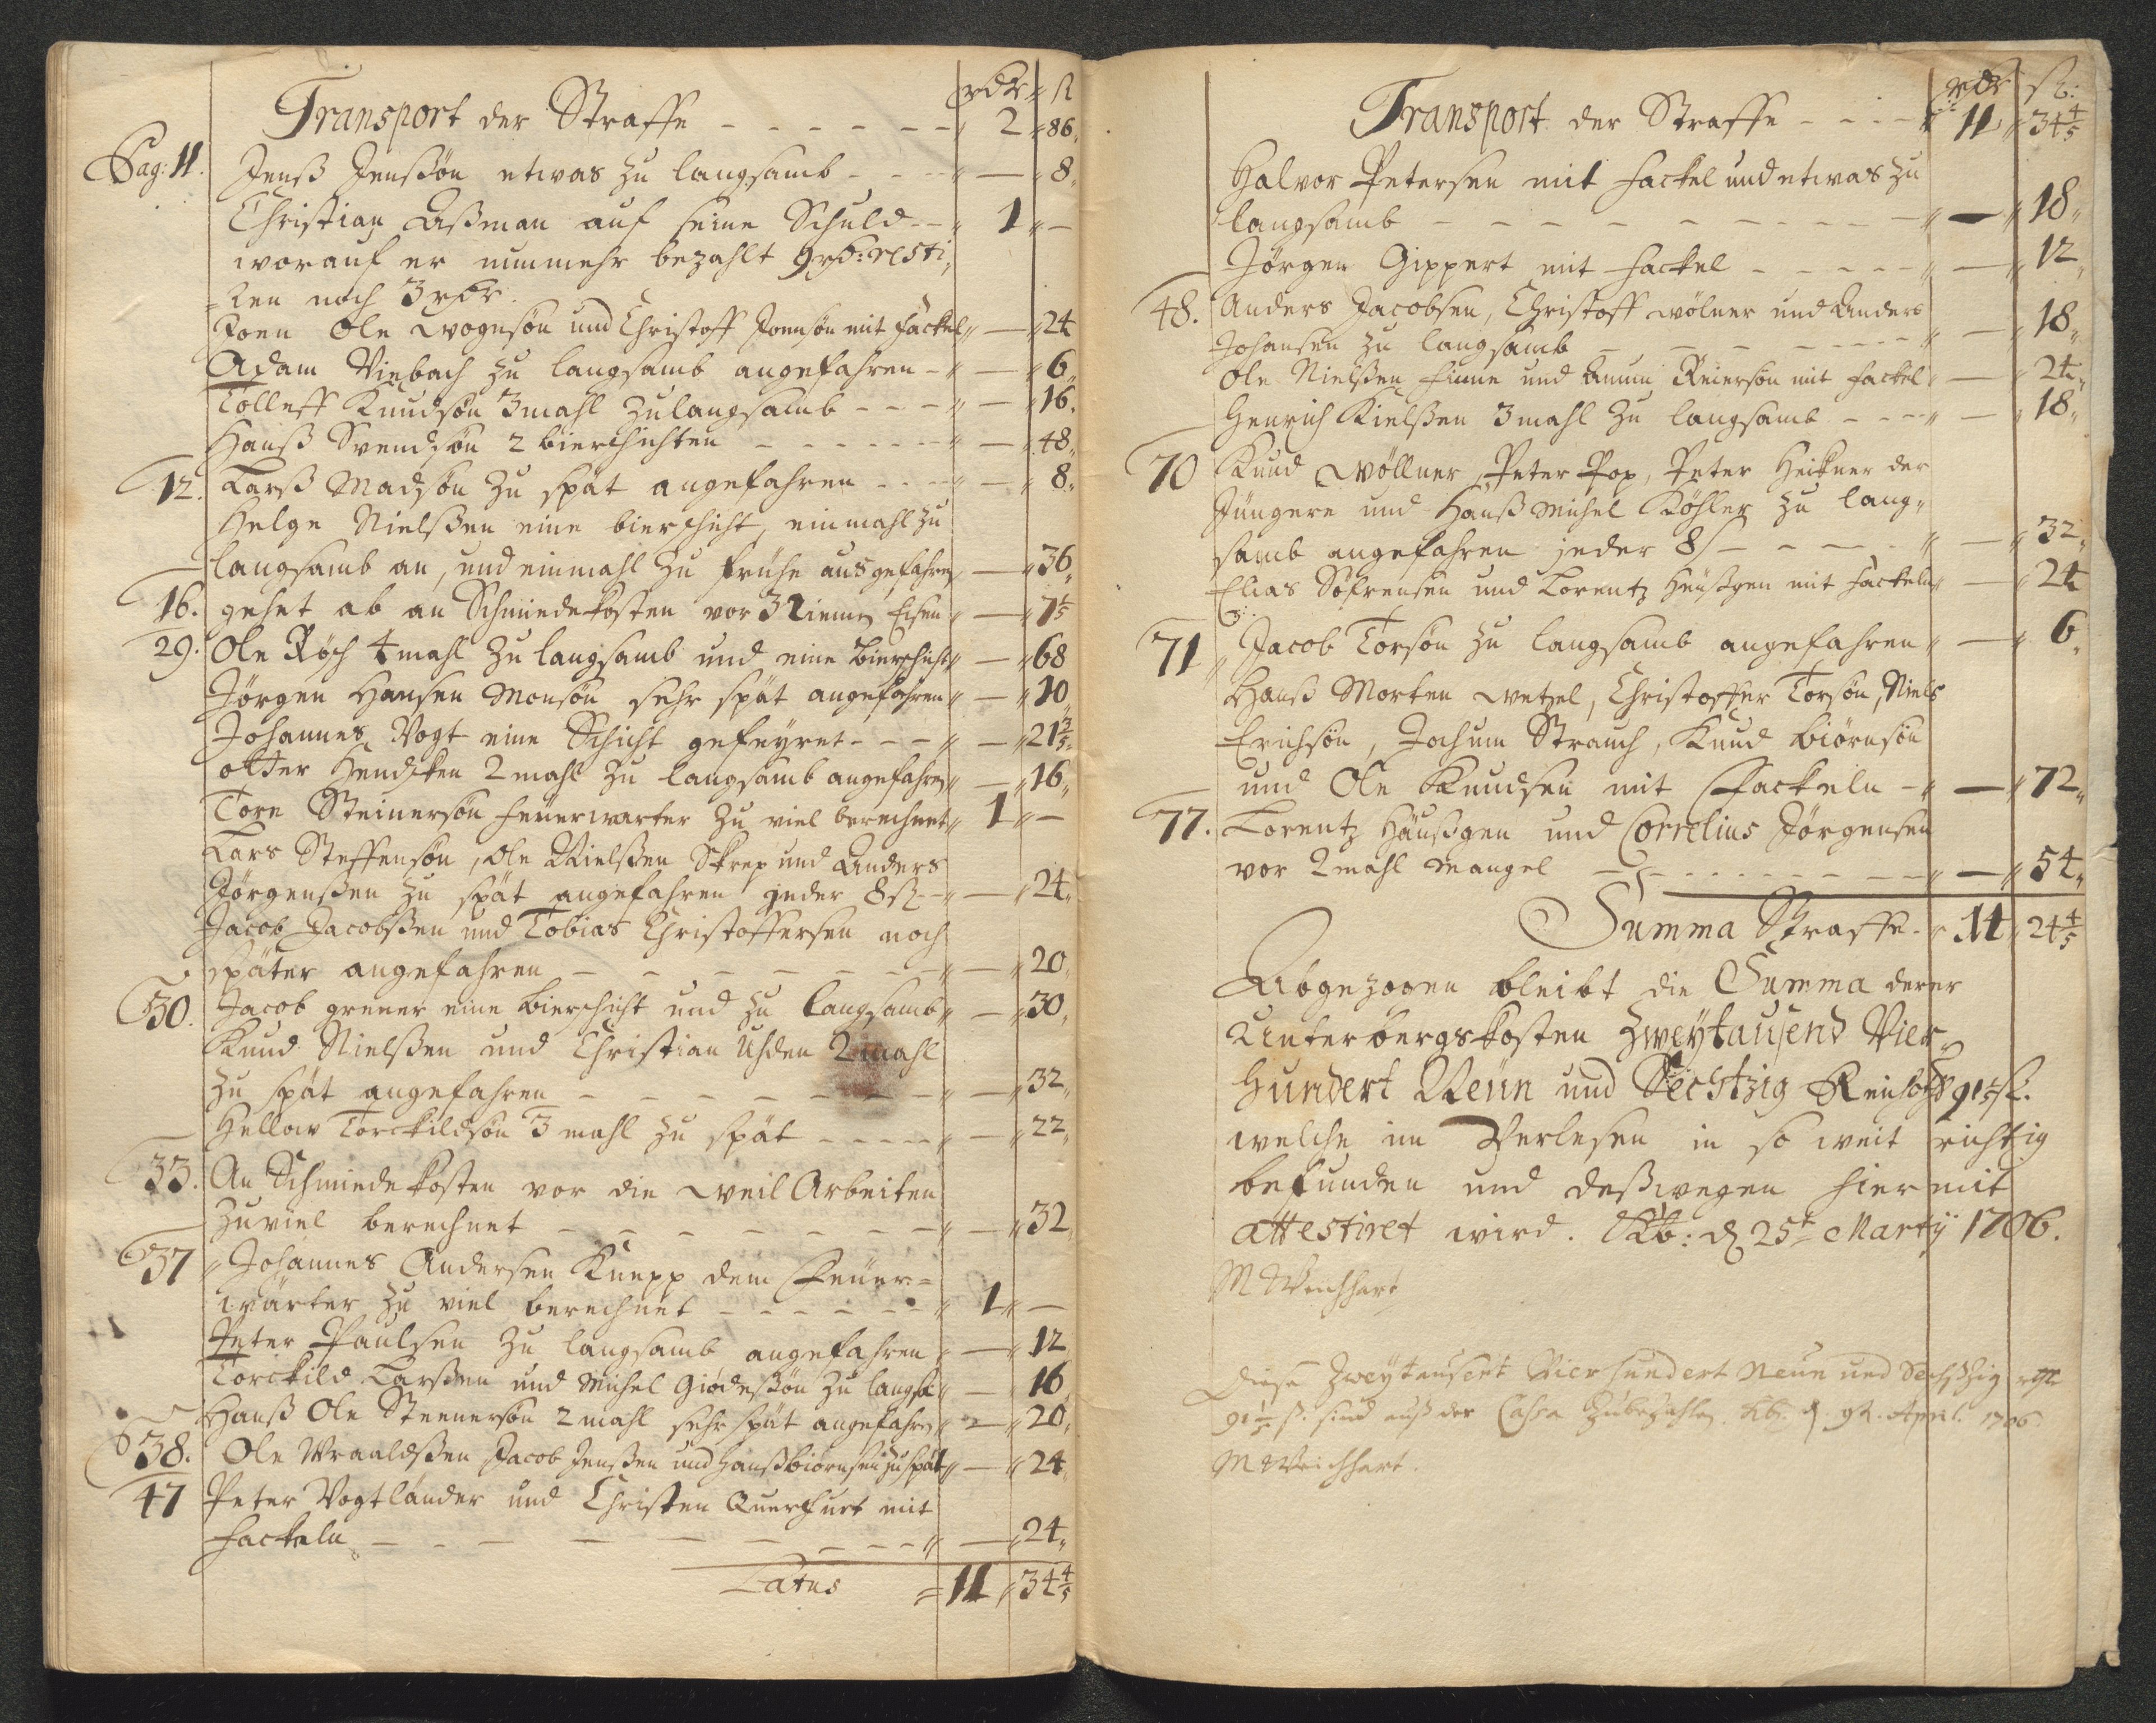 rdr ß
Transport der Straffe - - - - - - 2 " 86
Pag: 11. Jenß Jenßön etwas zu langsamb - - - " — " 8
Christian Aßman auf seine Schuld - - " 1 " —
worauf er nunmehr bezahlt 9 rdr: resti=
=ren noch 3 rdr.
Ole Wognsön und Christoff Joensön mit fackel " — " 24
Adam Viebach zu langsamb angefahren - " — " 6
Tolleff Knudsön 3mahl zu langsamb - - - " — " 16
Hanß Svendsön 2 bierschichten - - - - - " — " 48
12. Larß Madsön zu spät angefahren - - - " — " 8
Helge Nielßen eine bierschicht, einmahl zu
langsamb an, und einmahl zu frühe ausgefahren — " 36
16. gehet ab an Schmiedekosten vor 3 Eisen " — " 7 1/5
29. Ole Röch 4mahl zu langsamb und eine Bierschicht " — " 68
Jörgen Hansen Monsön sehr spät angefahren " — " 10
Johannes Vogt eine Schicht gefeyret - - - " — " 21 3/5
otter Hendrken 2mahl zu langsamb angefahren " — " 16
Tore Steinersön feuerwarter zu viel berechnet " 1 " —
Lars Steffensön, Ole Nielßen Skrep und Anders
Jörgenßen zu spät angefahren jeder 8 ß - - " — " 24
Jacob Jacobßen und Tobias Christoffersen noch
später angefahren - - - - - - - - " — " 20
30. Jacob grener eine Bierschicht und zu langsamb " — " 30
Knud Nielßen und Christian Uhden 2mahl
zu spät angefahren - - - - - - - " — " 32
Hellow Torckildsön 3 mahl zu spät - - - - " — " 22
33. An Schmiedekosten vor die weil Arbeiten
zuviel berechnet - - - - - - - " — " 32
37 " Johannes Andersen Knepp dem Feüer=
wärter zu viel berechnet - - - - - " 1 " —
Peter Paulsen zu langsamb angefahren " — " 12
Torckild Larßen und Michel Giödeßön zu langsa " — 16
Hanß Ole Steenersön 2 mahl sehr spät angefahren " — " 20
38. Ole Wraaldßen Jacob Jenßen und Hanß biörnsen zu spät " — " 24
47 Peter Vogtländer und Christen Querfurt mit
fackeln - - - - - - - - " — " 24
Latus = 11 " 34 4/5
rdr ß:
Transport der Straffe - - - " 11 " 34 4/5
Halvor Petersen mit fackel und etwas zu
langsamb - - - - - - - - - " — " 18
Jörgen Gippert mit fackel - - - - - " — " 12
48. Anders Jacobsen, Christoff wölner und Anders
Johansen zu langsamb - - - - - - - " — " 18
Ole Nielßen finne und Reiersön mit fackel " — " 24
Henrich Kielßen 3mahl zu langsamb - - - " — " 18
70 Knud Wöllner, Peter Pop, Peter Heitner der
Jüngere und Hanß Michel Köhler zu lang=
samb angefahren jeder 8 ß - - - - - " — " 32
Elias Söfrensen und Lorentz Heüßgen mit fackeln " — " 24
71 " Jacob Torsön zu langsamb angefahren " — " 6
Hanß Morten Wetzel, Christoffer Torsön, Niels
Erichsön, Jochum Strauch, Knud Biörnsön
und Ole Knudsen mit Fackeln - " — " 72
77. Lorentz Häußgen und Cornelius Jörgensen
vor 2mahl Mangel - - - - - - - - " — " 54
Summa Straffe - " 14 " 24 4/5
Abgezogen bleibt die Summa derer
Unterbergskosten Zweytausend Vier=
Hundert Neün und Sechtzig Reichsthl 91 1/5 ß.
welche im Verlesen in so weit richtig
befunden und deßwegen hiermit
attestiret wird. Kb: d 25t Martij 1706.
M Weichhart
Diese Zweytausent Vierhundert Neun und Sechzig rdl
91 1/5 ß. sind auß der Cassa zu bezahlen. Kb. d 92. April. 1706.
M Weichhart.